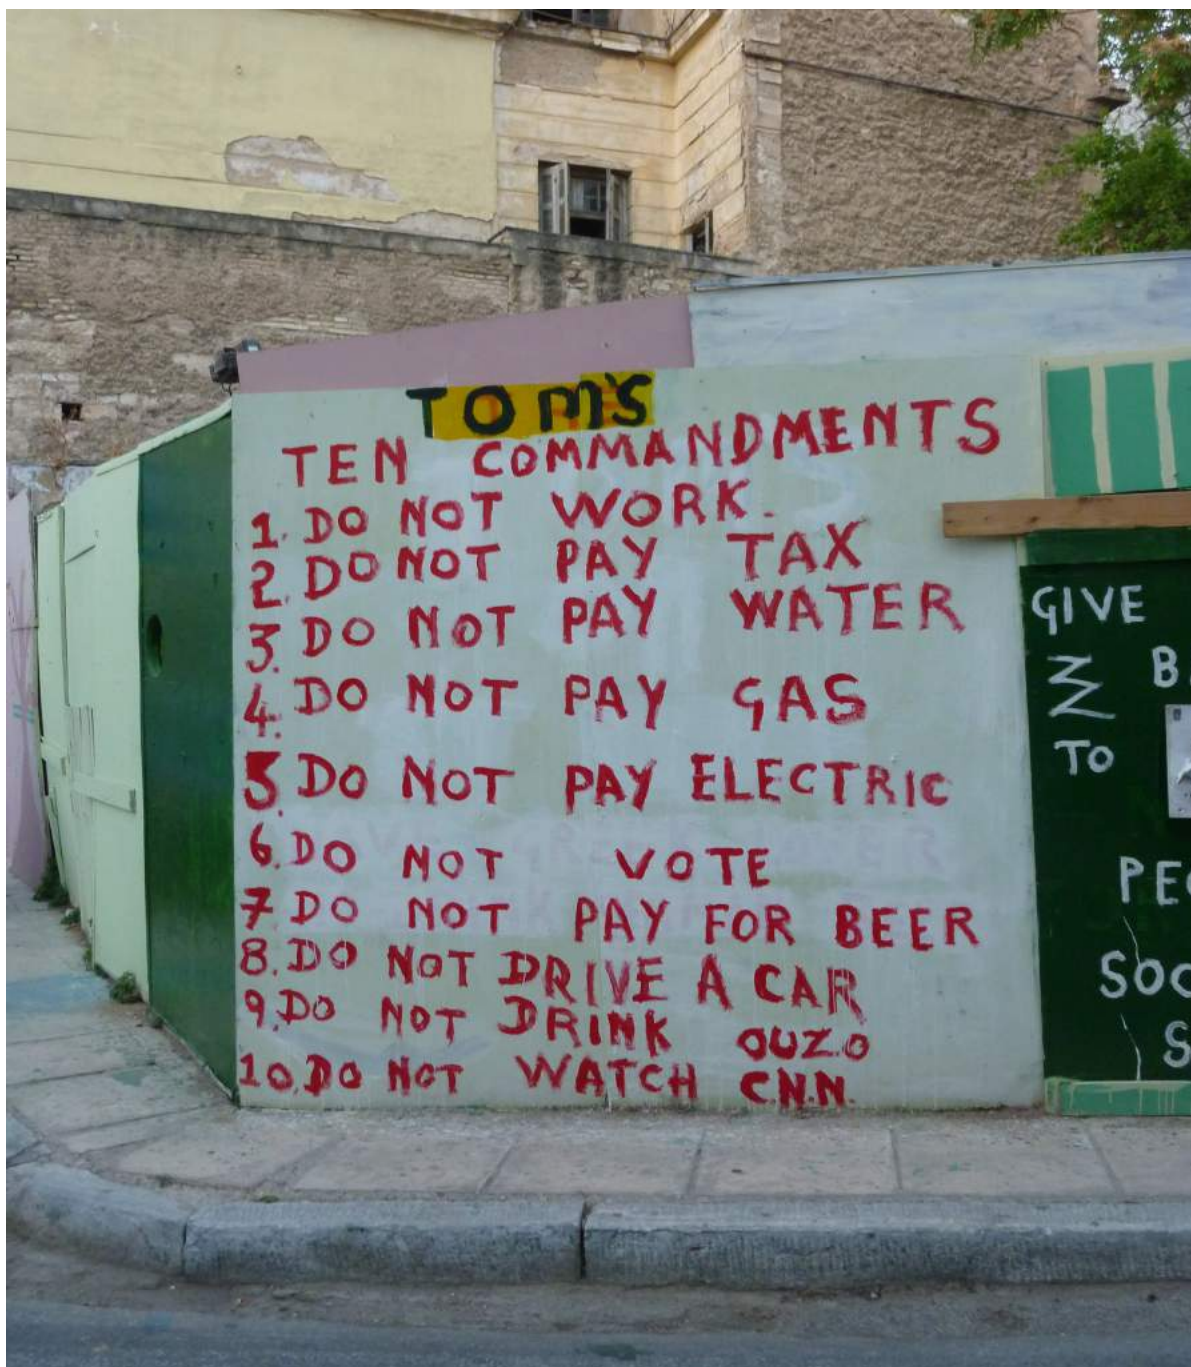 TOM'S
TEN COMMANDMENTS
1. DO NOT WORK.
2. DO NOT PAY TAX
3. DO NOT PAY WATER
4. DO NOT PAY GAS
5. DO NOT PAY ELECTRIC
6. DO NOT VOTE
7 DO NOT PAY FOR BEER
8. DO NOT DRIVE A CAR
9. DO NOT DRINK OUZO
10. DO NOT WATCH C.N.N.
GIVE
TO